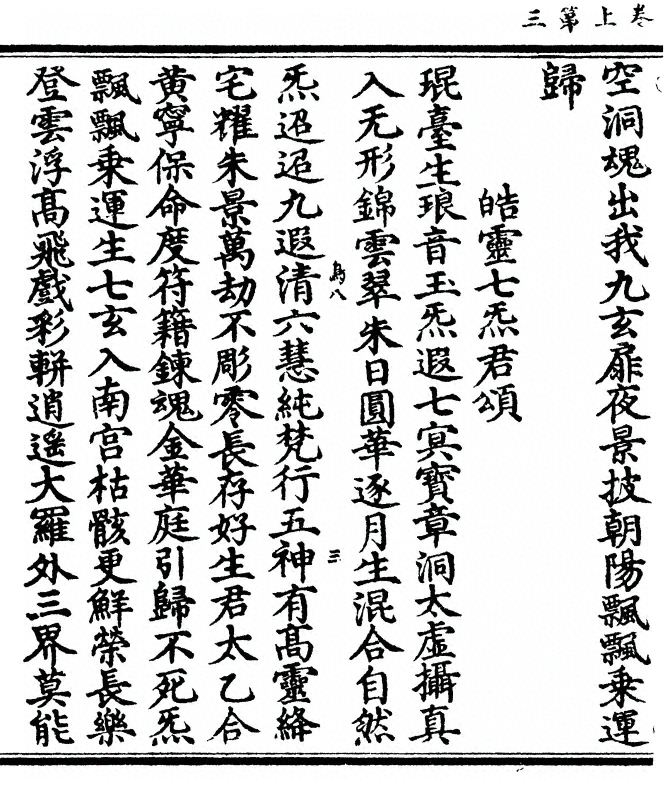 卷上第三
空洞魂出我九玄扉夜景披朝陽飄飄乗運
歸
皓靈七炁君頌
琨臺生琅音玉炁遐七冥寶章洞太虛攝真
入无形錦雲翠朱日圓華逐月生混合自然
爲八
三
炁迢迢九遐清六慧純梵行五神有髙靈絳
宅耀朱景萬劫不彫零長存好生君太乙合
黄寧保命度符籍鍊魂金華庭引歸不死炁
飄飄乗運生七玄入南宫枯骸更鮮榮長樂
登雲浮髙飛戲彩軿逍遥大羅外三界莫能